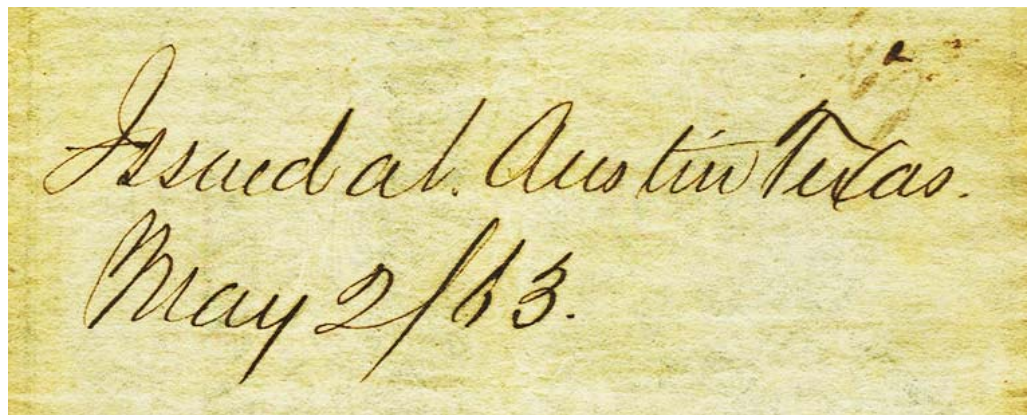 Issued at. Austin Texas.
May 2/63.